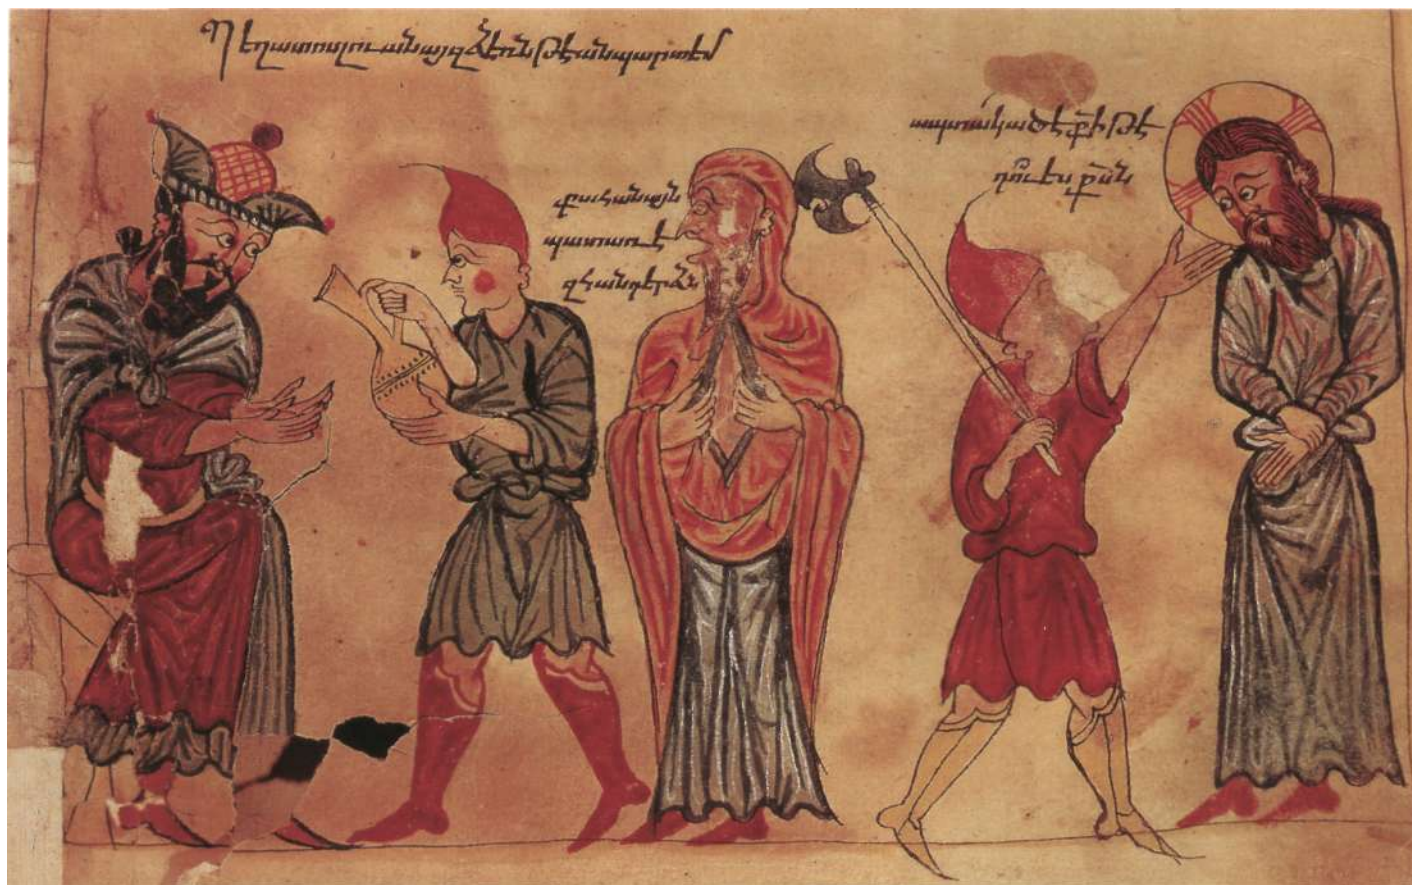 Պեղատոս լուանայ զձեռն թէ անպարտ եմ
քահանայն
պատառէ
զհանդերձն
ապտակ ածէ ք̅ի թէ
դու ես ք̅սն